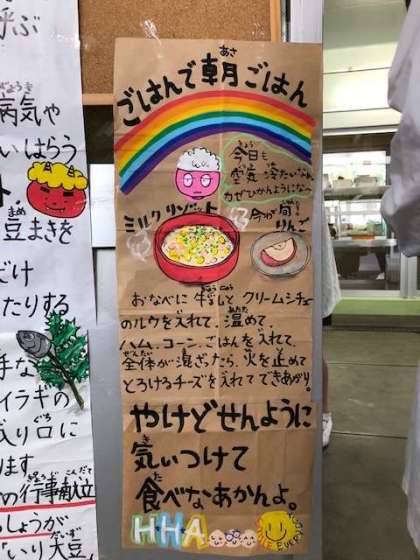 呼ぶ
びょうき
病気や
いはらう
まめ
豆まきを
だけ
たりする
手な
イラギの
入り口に
ます。
ぎょうじ こんだて
の行事献立
しょうが
「いり大豆」
あさ
ごはんで朝ごはん
今日も
空気冷たいなぁ
かぜひかんようになっ
ミルクリゾット
今が旬
りんご
おなべに牛乳とクリームシチュー
のルウを入れて、温めて、
ハム、コーン、ごはんを入れて、
ぜんたい ま ひ と
全体が混ざったら、火を止めて
とろけるチーズを入れてできあがり。
やけどせんように
き
気いつけて
た
食べなあかんよ。
HHA